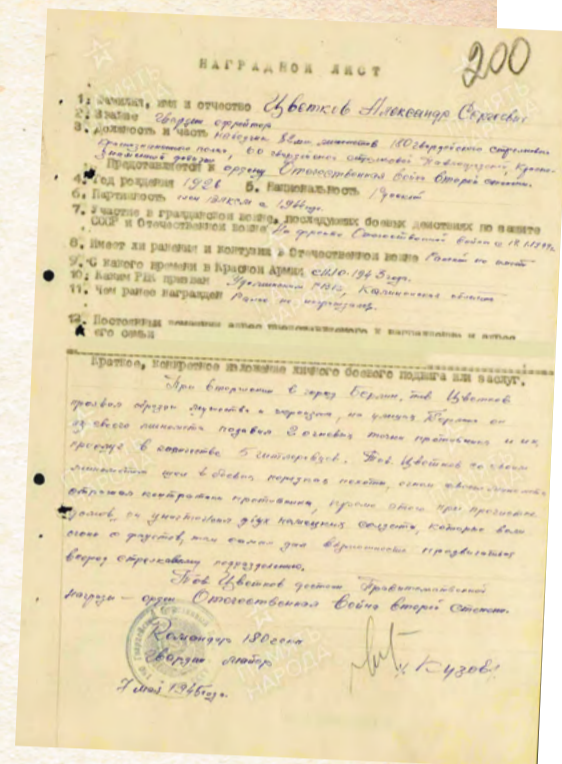 200
НАГРАДНОЙ ЛИСТ
1. Фамилия, имя и отчество Цветков Александр Сергеевич
2. Звание Гвардии ефрейтор
3. Должность и часть наводчик 82мм минометов 180 гвардейского стрелкового
краснознаменного полка, 60 гвардейской стрелковой Павлоградской, Красно-
знаменной дивизии
Представляется к ордену Отечественная война второй степени
4. Год рождения 1926 5. Национальность Русский
6. Партийность член ВЛКСМ с 1944 года
7. Участие в гражданской войне, последующих боевых действиях по защите
СССР и Отечественной войне На фронте Отечественной войны с
8. Имеет ли ранения и контузии в Отечественной войне
9. С какого времени в Красной Армии с 1943 года
10. Каким РВК призван РВК, Калининская область
11. Чем ранее награжден Ранее не награждался
12. Постоянный домашний адрес и адрес
его семьи
Краткое, конкретное изложение личного боевого подвига или заслуг.
При вторжении в город Берлин, тов Цветков
проявил образец мужества и на улицах Берлина он
из своего миномета подавил 2 огневых точки противника и их
в количестве 5 гитлеровцев. Тов. Цветков со своим
минометом шел в боевых порядках пехоты, огнем
отражая контратаки противника, кроме этого при
домов, он уничтожил двух немецких солдат, которые вели
огонь тем самым дал возможность продвигаться
вперед стрелковому подразделению.
Тов Цветков достоин Правительственной
награды – орден Отечественная Война второй степени.
Командир 180
Гвардии майор
Кузов
7 мая 1945 года.
ПАМЯТЬ
НАРОДА